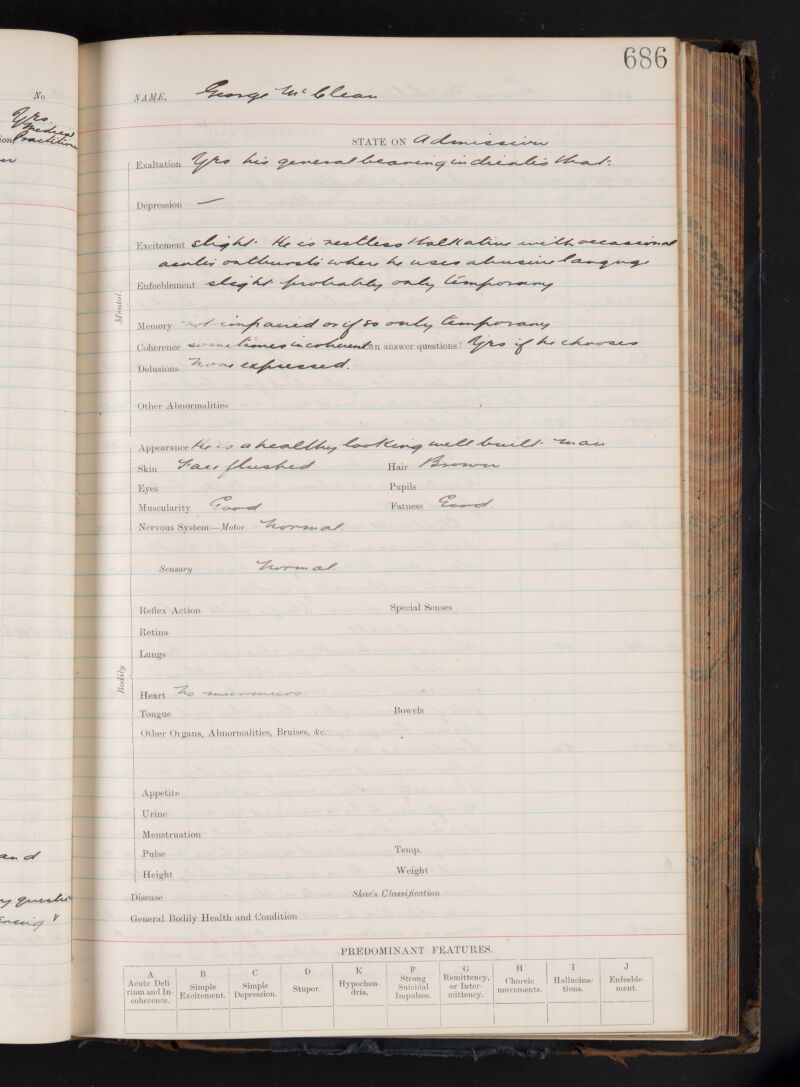 686
No.
Yes
Medical
Practitioner
NAME, George McClean
STATE ON Admission
Exaltation Yes his general bearing indicates that.
Depression —
Excitement slight. He is restless & talkative with occasional
acute outbursts where he uses abusive language
Enfeeblement slight probably only temporary
Mental.
Memory not impaired or if so only temporary
Coherence sometimes incoherent Can answer questions? Yes if he chooses
Delusions None expressed.
Other Abnormalities
Appearance He is a healthy looking well built man
Skin Face flushed Hair Brown
Eyes Pupils
Muscularity Good Fatness Good.
Nervous System—Motor Normal.
Sensory Normal.
Reflex Action Special Senses
Retina
Lungs
Bodily
Heart No murmurs.
Tongue Bowels
Other Organs, Abnormalities, Bruises, &c.
Appetite
Urine
Menstruation
Pulse Temp.
and
Height Weight
Disease Skae's Classification
question
General Bodily Health and Condition
PREDOMINANT FEATURES.
A B C D E F G H I J
Acute Delirium and Incoherence. Simple Excitement. Simple Depression. Stupor. Hypochondria. Strong Suicidal Impulses. Remittency, or Intermittency. Choreic movements. Hallucinations. Enfeeblement.